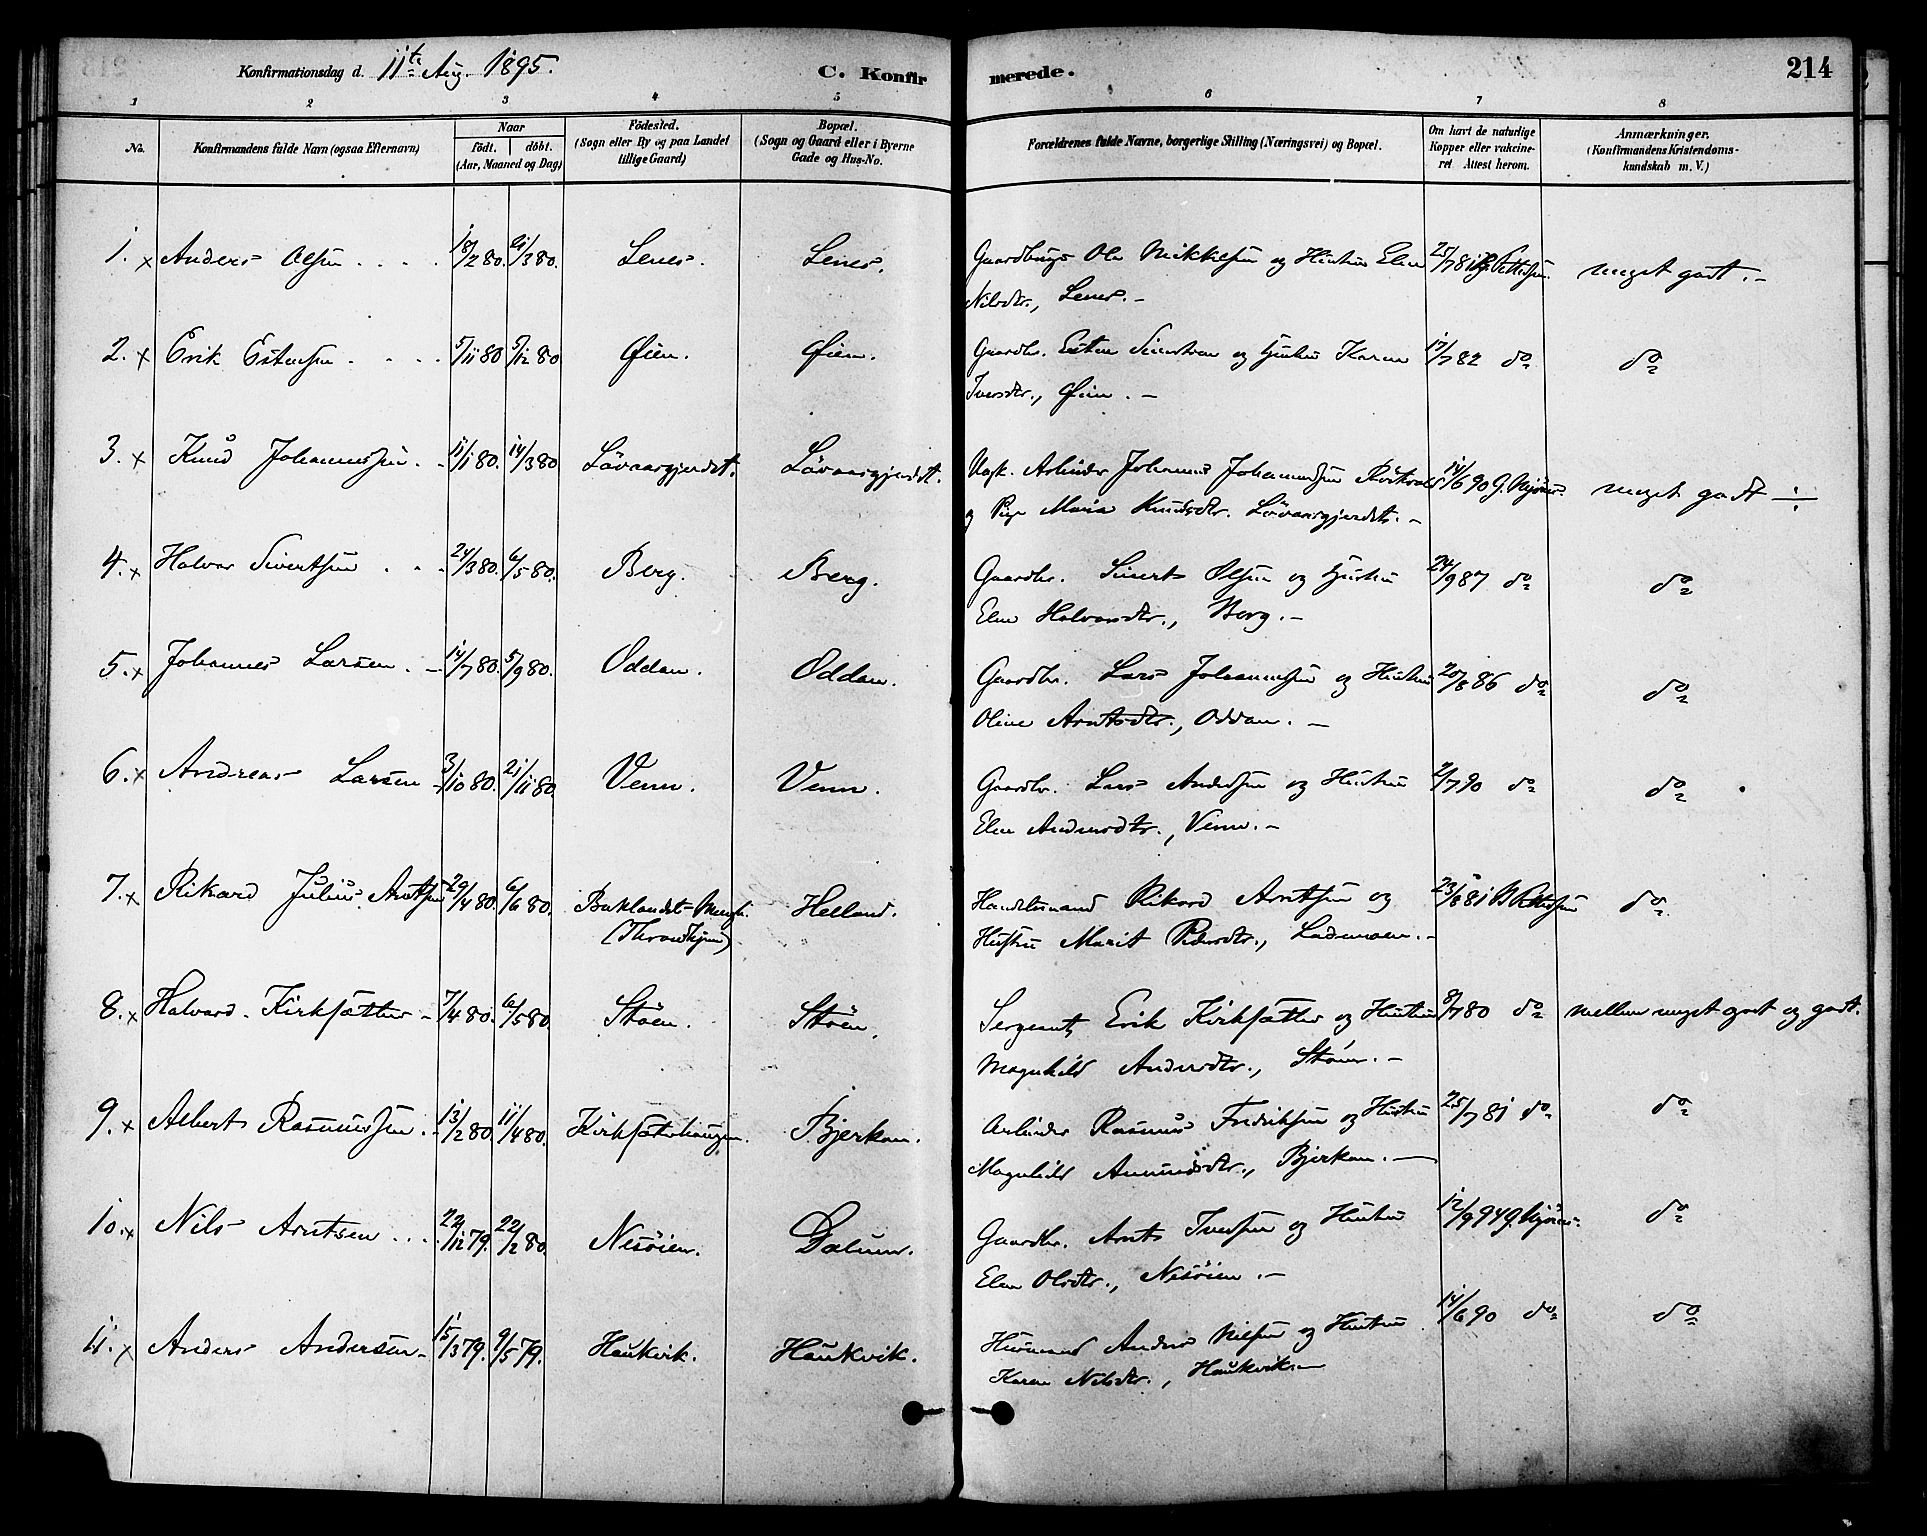 Konfirmationsdag d. 11te Aug. 1895.
C. Konfirmerede.
214
1 2 3 4 5 6 7 8
No.
Konfirmandens fulde Navn (ogsaa Efternavn)
Naar
födt. döbt.
(Aar, Maaned og Dag)
Födested.
(Sogn eller By og paa Landet
tillige Gaard)
Bopæl.
(Sogn og Gaard eller i Byerne
Gade og Hus-No.
Forældrenes fulde Navne, borgerlige Stilling (Næringsvei) og Bopæl.
Om havt de naturlige
Kopper eller vakcine-
ret Attest herom.
Anmærkninger.
(Konfirmandens Kristendoms-
kundskab m. V.)
1. x Anders Olsen 18/2 80. 21/3 80. Lenes. Lenes. Gaardbrugs Ole Mikkelsen og Hustru Elen 25/7 81 meget godt. -
Nilsdtr., Lenes. -
2. x Erik Estensen 5/11 80 5/12 80 Øien. Øien. Gaardbr. Esten Sivertsen og Hustru Karen 17/7 82 do do
Iversdtr., Øien. -
3. x Knud Johannessen 11/1 80. 14/3 80 Lövaasgjerdet. Lövaasgjerdet. Arbeider Johannes Johannessen 14/6 90 meget godt ÷
og Pige Maria Knudsdtr. Lövaasgjerdet. -
4. x Halvor Sivertsen 24/3 80. 6/5 80. Berg. Berg. Gaardbr. Sivert Olsen og Hustru 24/9 87 do do
Elen Halvorsdtr., Berg. -
5. x Johannes Larsen. 14/7 80. 5/9 80. Oddan. Oddan. Gaardbr. Lars Johannessen og Hustru 20/8 86 do do
Oline Arntsdtr., Oddan. -
6. x Andreas Larsen 3/10 80. 21/11 80. Venn. Venn. Gaardbr. Lars Andersen og Hustru 2/7 90 do do
Elen Andersdtr., Venn. -
7. x Rikard Julius Arntsen 29/4 80. 6/6 80. Baklandet - Helland. Handelsmand Rikard Arntsen og 23/8 81 do
(Throndhjem) Hustru Marit Pedersdtr., Lademoen. -
8. x Halvard Kirksætter 7/4 80. 6/5 80. Stöen. Stöen. Sergeant Erik Kirksætter og Hustru 8/7 80 do mellem meget godt og godt.
Magnhild Andersdtr., Stöen. -
9. x Albert Rasmussen 13/2 80. 11/4 80. Kirksæterhaugen. Bjerkan. Arbeider Rasmus Fredriksen og Hustru 25/7 81 do do
Magnhild Amundsdtr., Bjerkan. -
10. x Nils Arntsen 22/12 79. 22/2 80. Nesöien. Dalum. Gaardbr. Arnt Iversen og Hustru 12/9 94 do
Elen Olsdtr., Nesöien. -
11. x Anders Andersen 15/3 79. 9/5 79. Haukvik. Haukvik. Husmand Anders Nilsen og Hustru 14/6 90 do do
Karen Nilsdtr., Haukvik. -